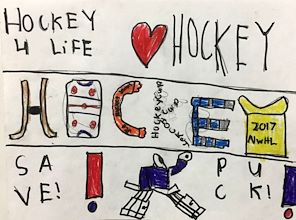 HOCKEY
4 LiFE
HOCKEY
HOCKEY
2017
NWHL
SA
VE!
PU
CK!